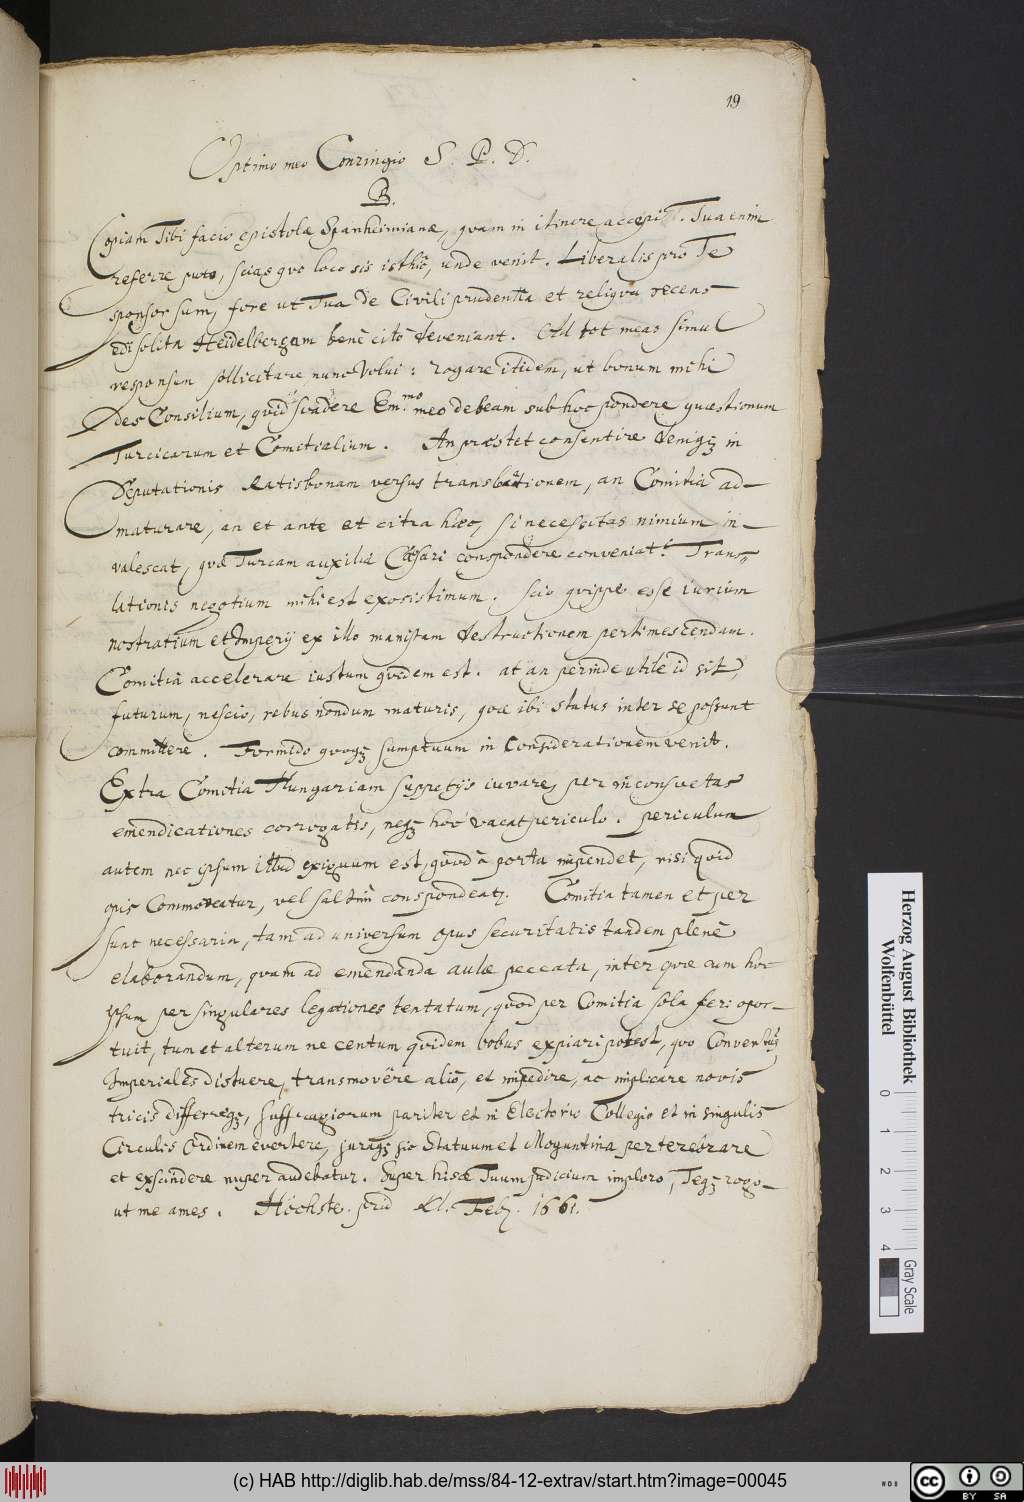 19
Optimo meo Conringio S. P. D.
B.
Copiam Tibi facio epistolæ Spanheimianæ, quam in itinere accepi. Tua enim
referre puto, scias quo loco sis isthic, unde venit. Liberalis pro Te
sponsor sum, fore ut Tua de Civili prudentia et reliqua recens
edi solita Heidelbergam benè citò deveniant. Ad tot meas simul
responsum sollicitare nunc volui: rogare itidem, ut bonum mihi
des Consilium, quid svadere Em.mo meo debeam sub hoc pondere quæstionum
Turcicarum et Comitialium. An præstet consentire deniq3 in
Deputationis Ratisbonam versus translationem, an Comitia ad-
maturare, an et ante et citra hæc, si necessitas nimium in-
valescat, quæ Turcam auxilia Cæsari conspondere conveniat? Trans-
lationis negotium mihi est exosissimum. Scio quippe esse iurium
nostratium et Imperij ex illo manifestam destructionem pertimescendam.
Comitia accelerare iustum quidem est. at an perinde utile id sit,
futurum, nescio, rebus nondum maturis, quæ ibi status inter se possunt
committere. Formido quoq3 sumptuum in Considerationem venit.
Extra Comitia Hungariam suppetijs iuvare, per inconsuetas
emendicationes corrogatis, neq3 hoc vacat periculo. periculum
autem nec ipsum illud exiguum est, quod à porta impendet, nisi quid
opis Commoveatur, vel saltim conspondeat. Comitia tamen et per
sunt necessaria, tam ad universum opus securitatis tandem plenè
elaborandum, quam ad emendanda aulæ peccata, inter quæ cum hoc
ipsum per singulares legationes tentatum, quod per Comitia sola fer: opor-
tuit, tum et alterum ne centum quidem bobus expiari potest, quo Conventus
Imperiales distuere, transmovere aliò, et impedire, ac implicare novis
tricis differreq3, suffragiorum pariter et in Electorio Collegio et in singulis
Circulis Ordinem evertere, juraq3 sic Statuum et Moguntina perterebrare
et exscindere nuper audebatur. Super hisce Tuum judicium imploro, Teq3 rogo
ut me ames. Höchste. prid Kl. Feb. 1661.
Herzog August Bibliothek
Wolfenbüttel
0 1 2 3 4
Gray Scale
(c) HAB http://diglib.hab.de/mss/84-12-extrav/start.htm?image=00045
cc BY SA